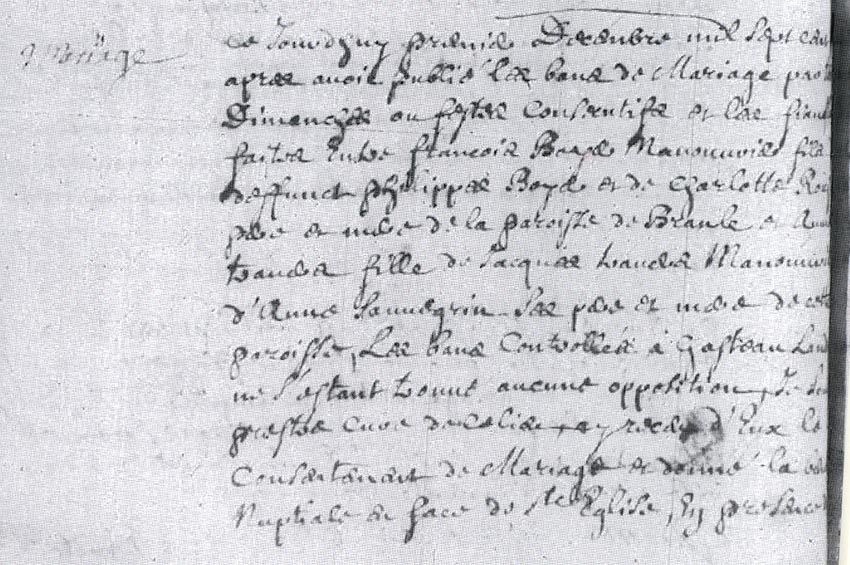 Mariage
ce Jourdhuy premier Decembre mil sept cen
apres avoir publié les bans de Mariage par
Dimenches ou festes Consecutifs et les fian
faites Entre francois Boyer Manouvrier fils
deffunct philippes Boyer et de Charlotte
pere et mere de la paroisse de Bransle et Ann
fille de Jacques Manouvri
d'Anne Sauvegrin ses pere et mere de cett
paroisse, Les bans Controllés à Chasteau Lan
ne s'estant trouvé aucune opposition, Je
prestre Curé de ay receu d'Eux le
Consentement de Mariage et donné la be
Nuptiale en face de ste Eglise, En presence